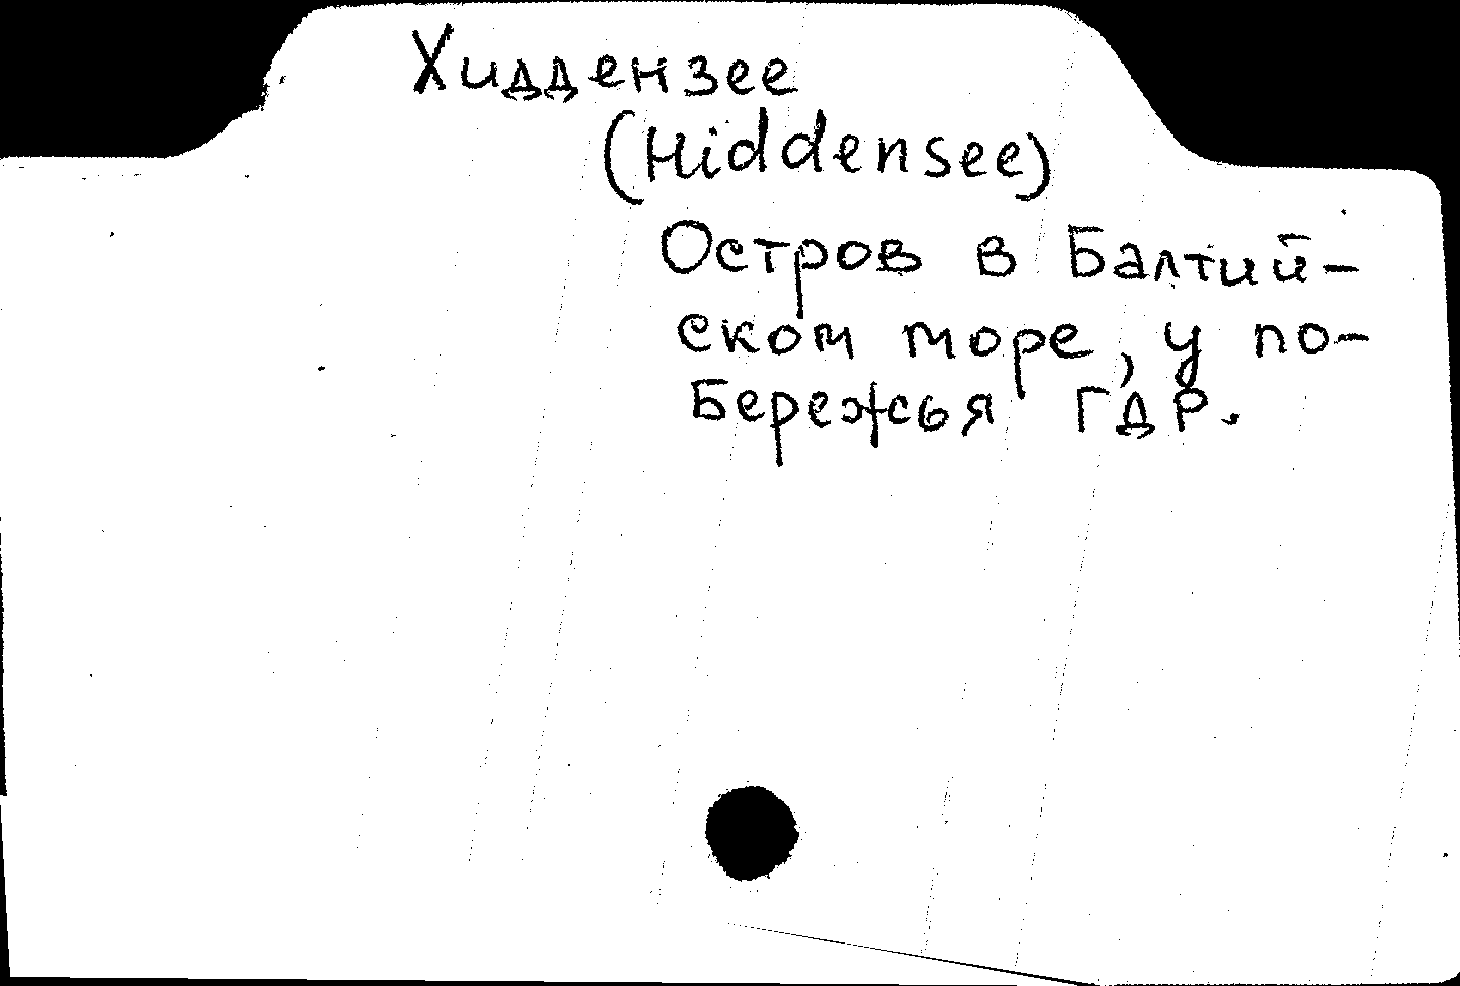 Хиддензее
(Hiddensee)
Остров в Балтий-
ском море, у по-
бережья ГДР.